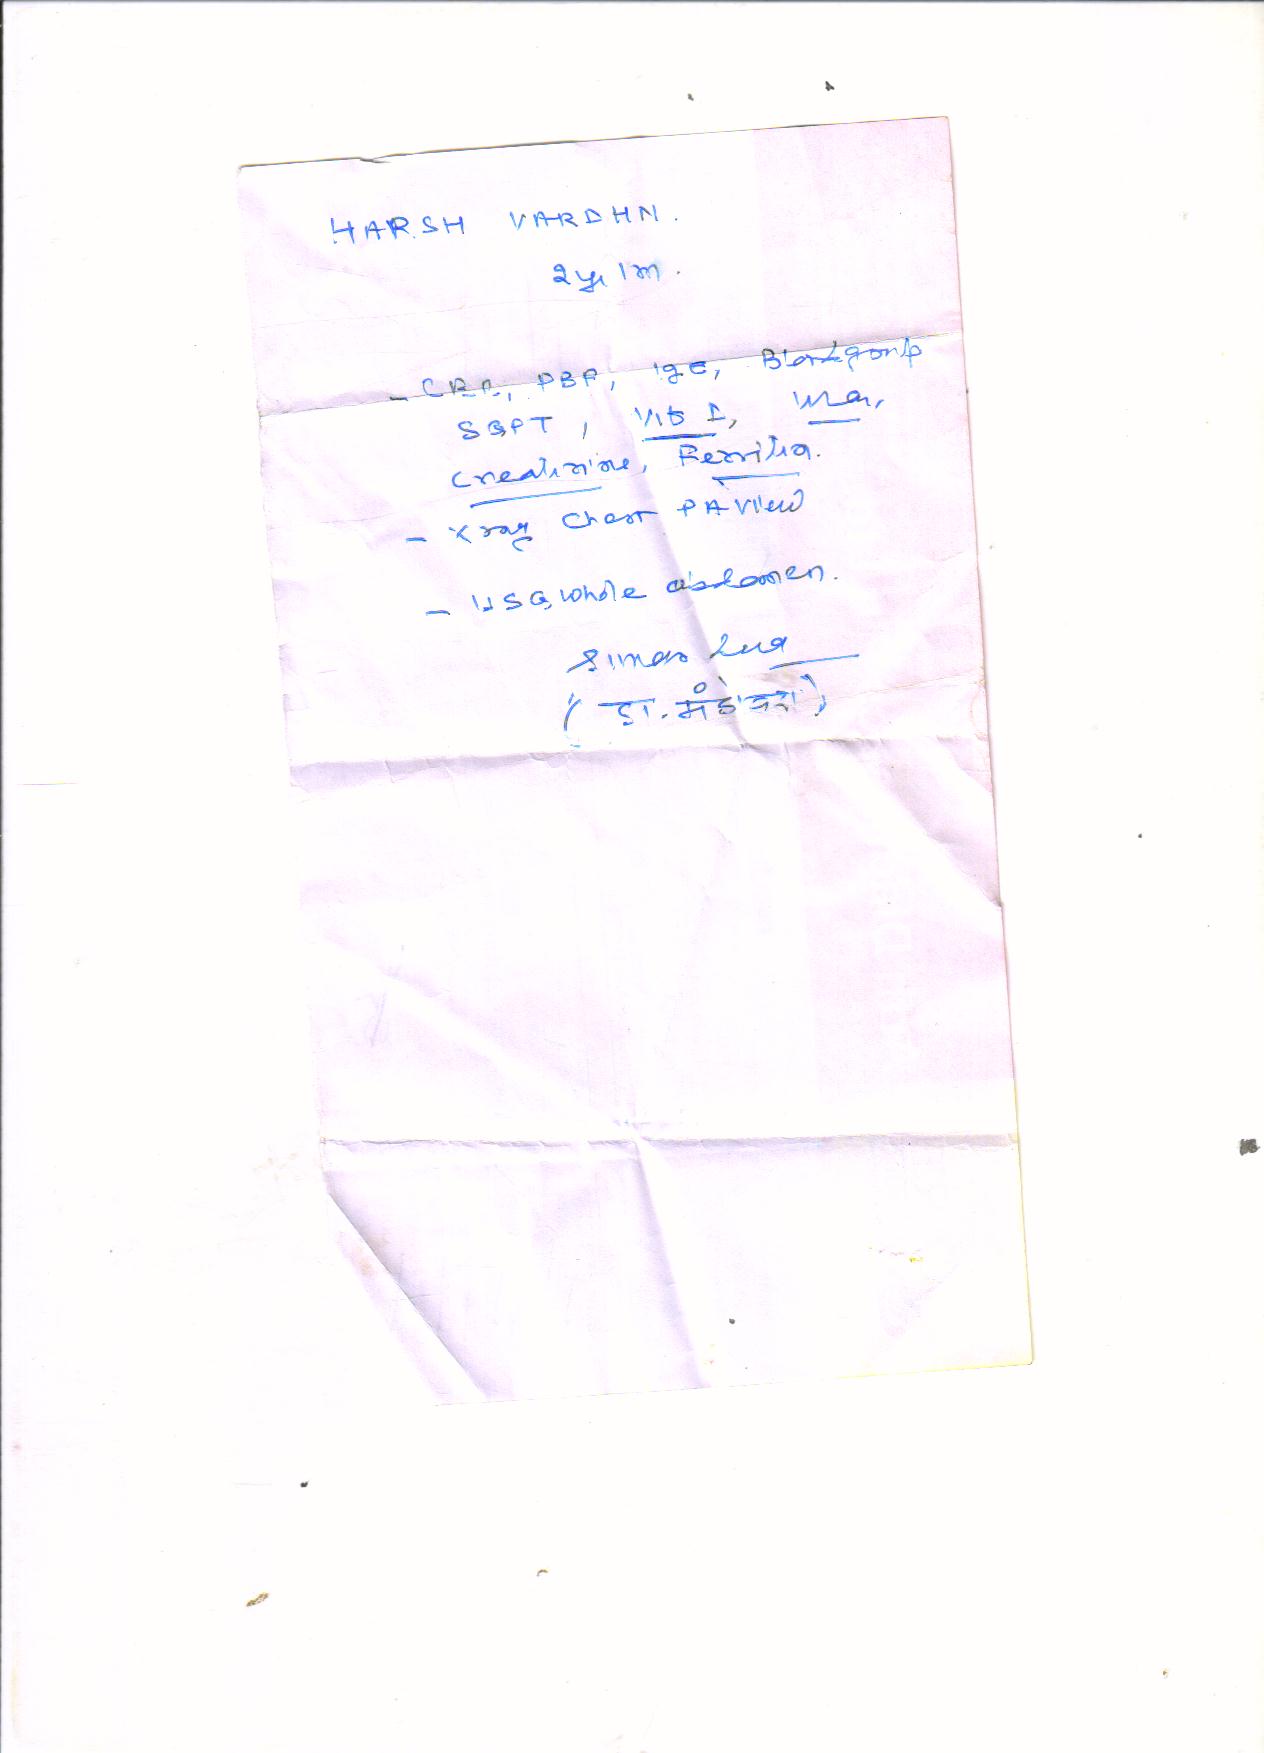 HARSH VARDHN.
2yr 1m.
- CBC, PBF, IgE, Blood group
SGPT, Vit D, Urea,
Creatinine, Ferritin.
- X ray Chest PA View
- USG whole abdomen.